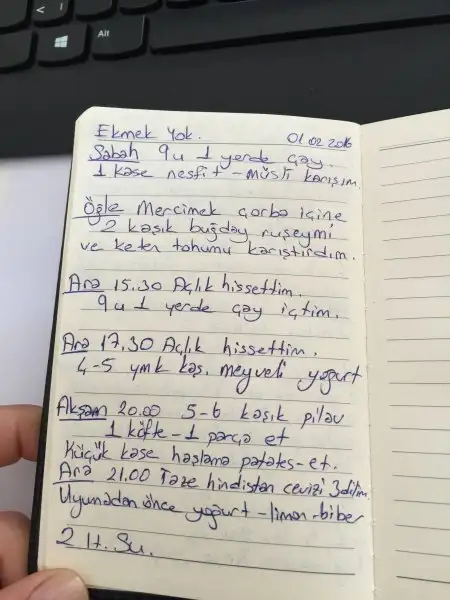 Alt
Ekmek Yok. 01.02.2016
Sabah 9u 1 yerde çay.
1 kase nesfit - müsli karışım.
Öğle Mercimek çorba içine
2 kaşık buğday ruşeymi
ve keten tohumu karıştırdım.
Ara 15.30 Açlık hissettim.
9u 1 yerde çay içtim.
Ara 17.30 Açlık hissettim.
4-5 ymk kaş. meyveli yogurt
Akşam 20.00 5-6 kaşık pilav
1 köfte - 1 parça et
Küçük kase haşlama patates - et.
Ara 21.00 Taze hindistan cevizi 3 dilim.
Uyumadan önce yogurt - limon - biber
2 lt. Su.